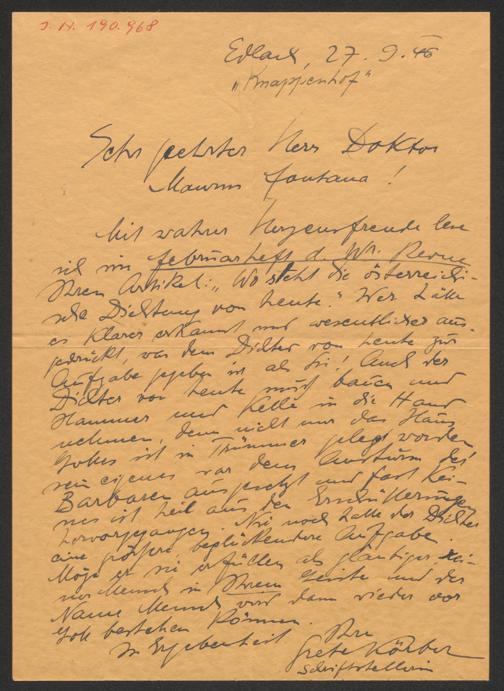 J. N. 190.968
Edlach, 27. 9. 46
"Knappenhof"
Sehr geehrter Herr Doktor
Maurus Fontana!
Mit wahrer Herzensfreude lese
ich im Februarheft d. Wr. Revue
Ihren Artikel: "Wo steht die österreichi-
sche Dichtung von heute." Wer hätte
es klarer erkannt und wesentlicher aus-
gedrückt, was dem Dichter von heute zur
Aufgabe gegeben ist als Sie! Auch der
Dichter von heute muß bauen und
Hammer und Kelle in die Hand
nehmen, denn nicht nur das Haus
Gottes ist in Trümmer gelegt worden
sein eigenes war dem Ansturm der
Barbaren ausgesetzt und fast kei-
nes ist heil aus den Erschütterungen
hervorgegangen. Nie noch hatte der Dichter
eine größere, beglückendere Aufgabe.
Möge er sie erfüllen als gläubiger,
Mensch in Ihrem Geiste und der
Name Mensch wird dann wieder vor
Gott bestehen können.
In Ergebenheit Ihre
Grete Körber
Schriftstellerin